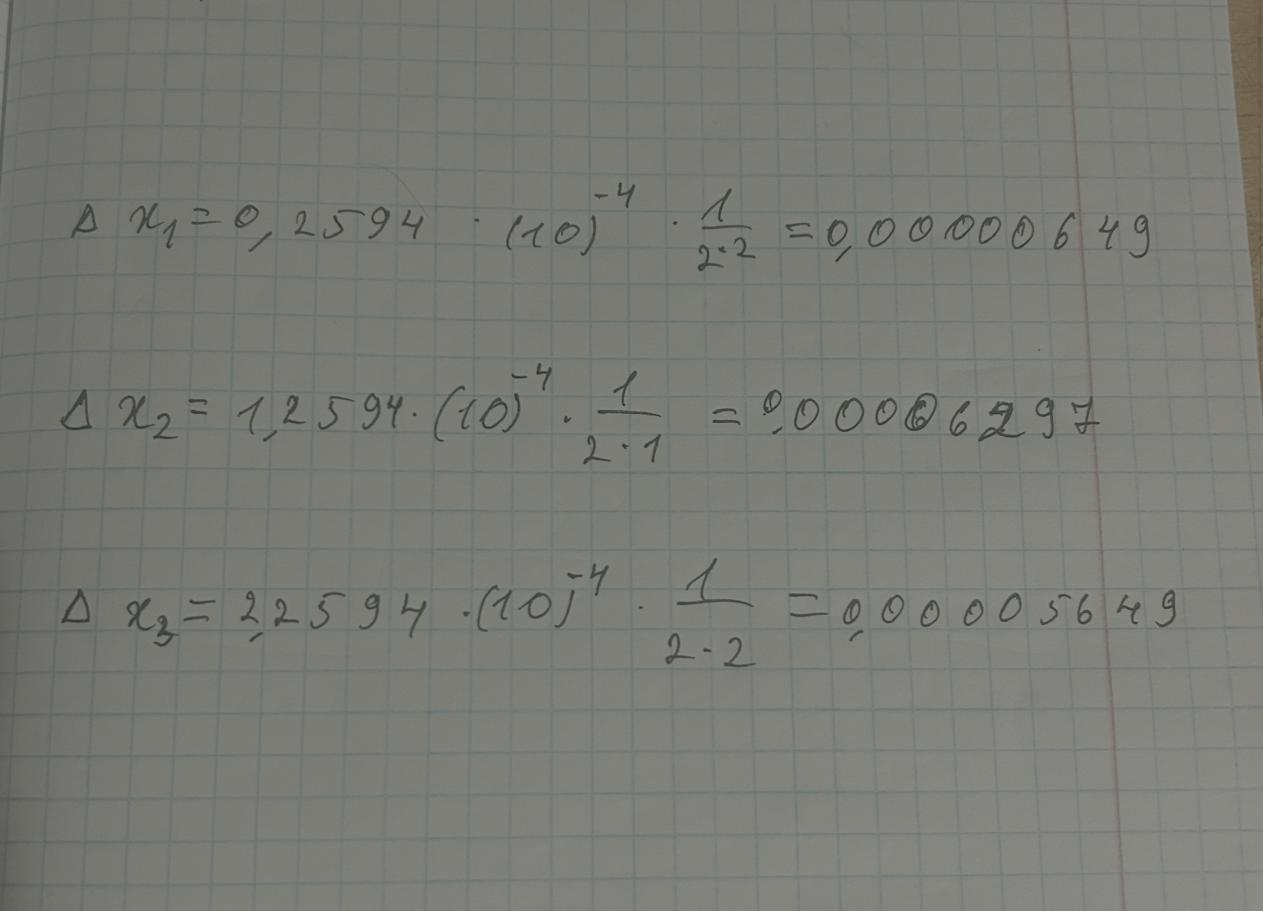 Δ x₁ = 0,2594 · (10)⁻⁴ · 1/(2·2) = 0,00000649
Δ x₂ = 1,2594 · (10)⁻⁴ · 1/(2·1) = 0,00006297
Δ x₃ = 2,2594 · (10)⁻⁴ · 1/(2·2) = 0,00005649